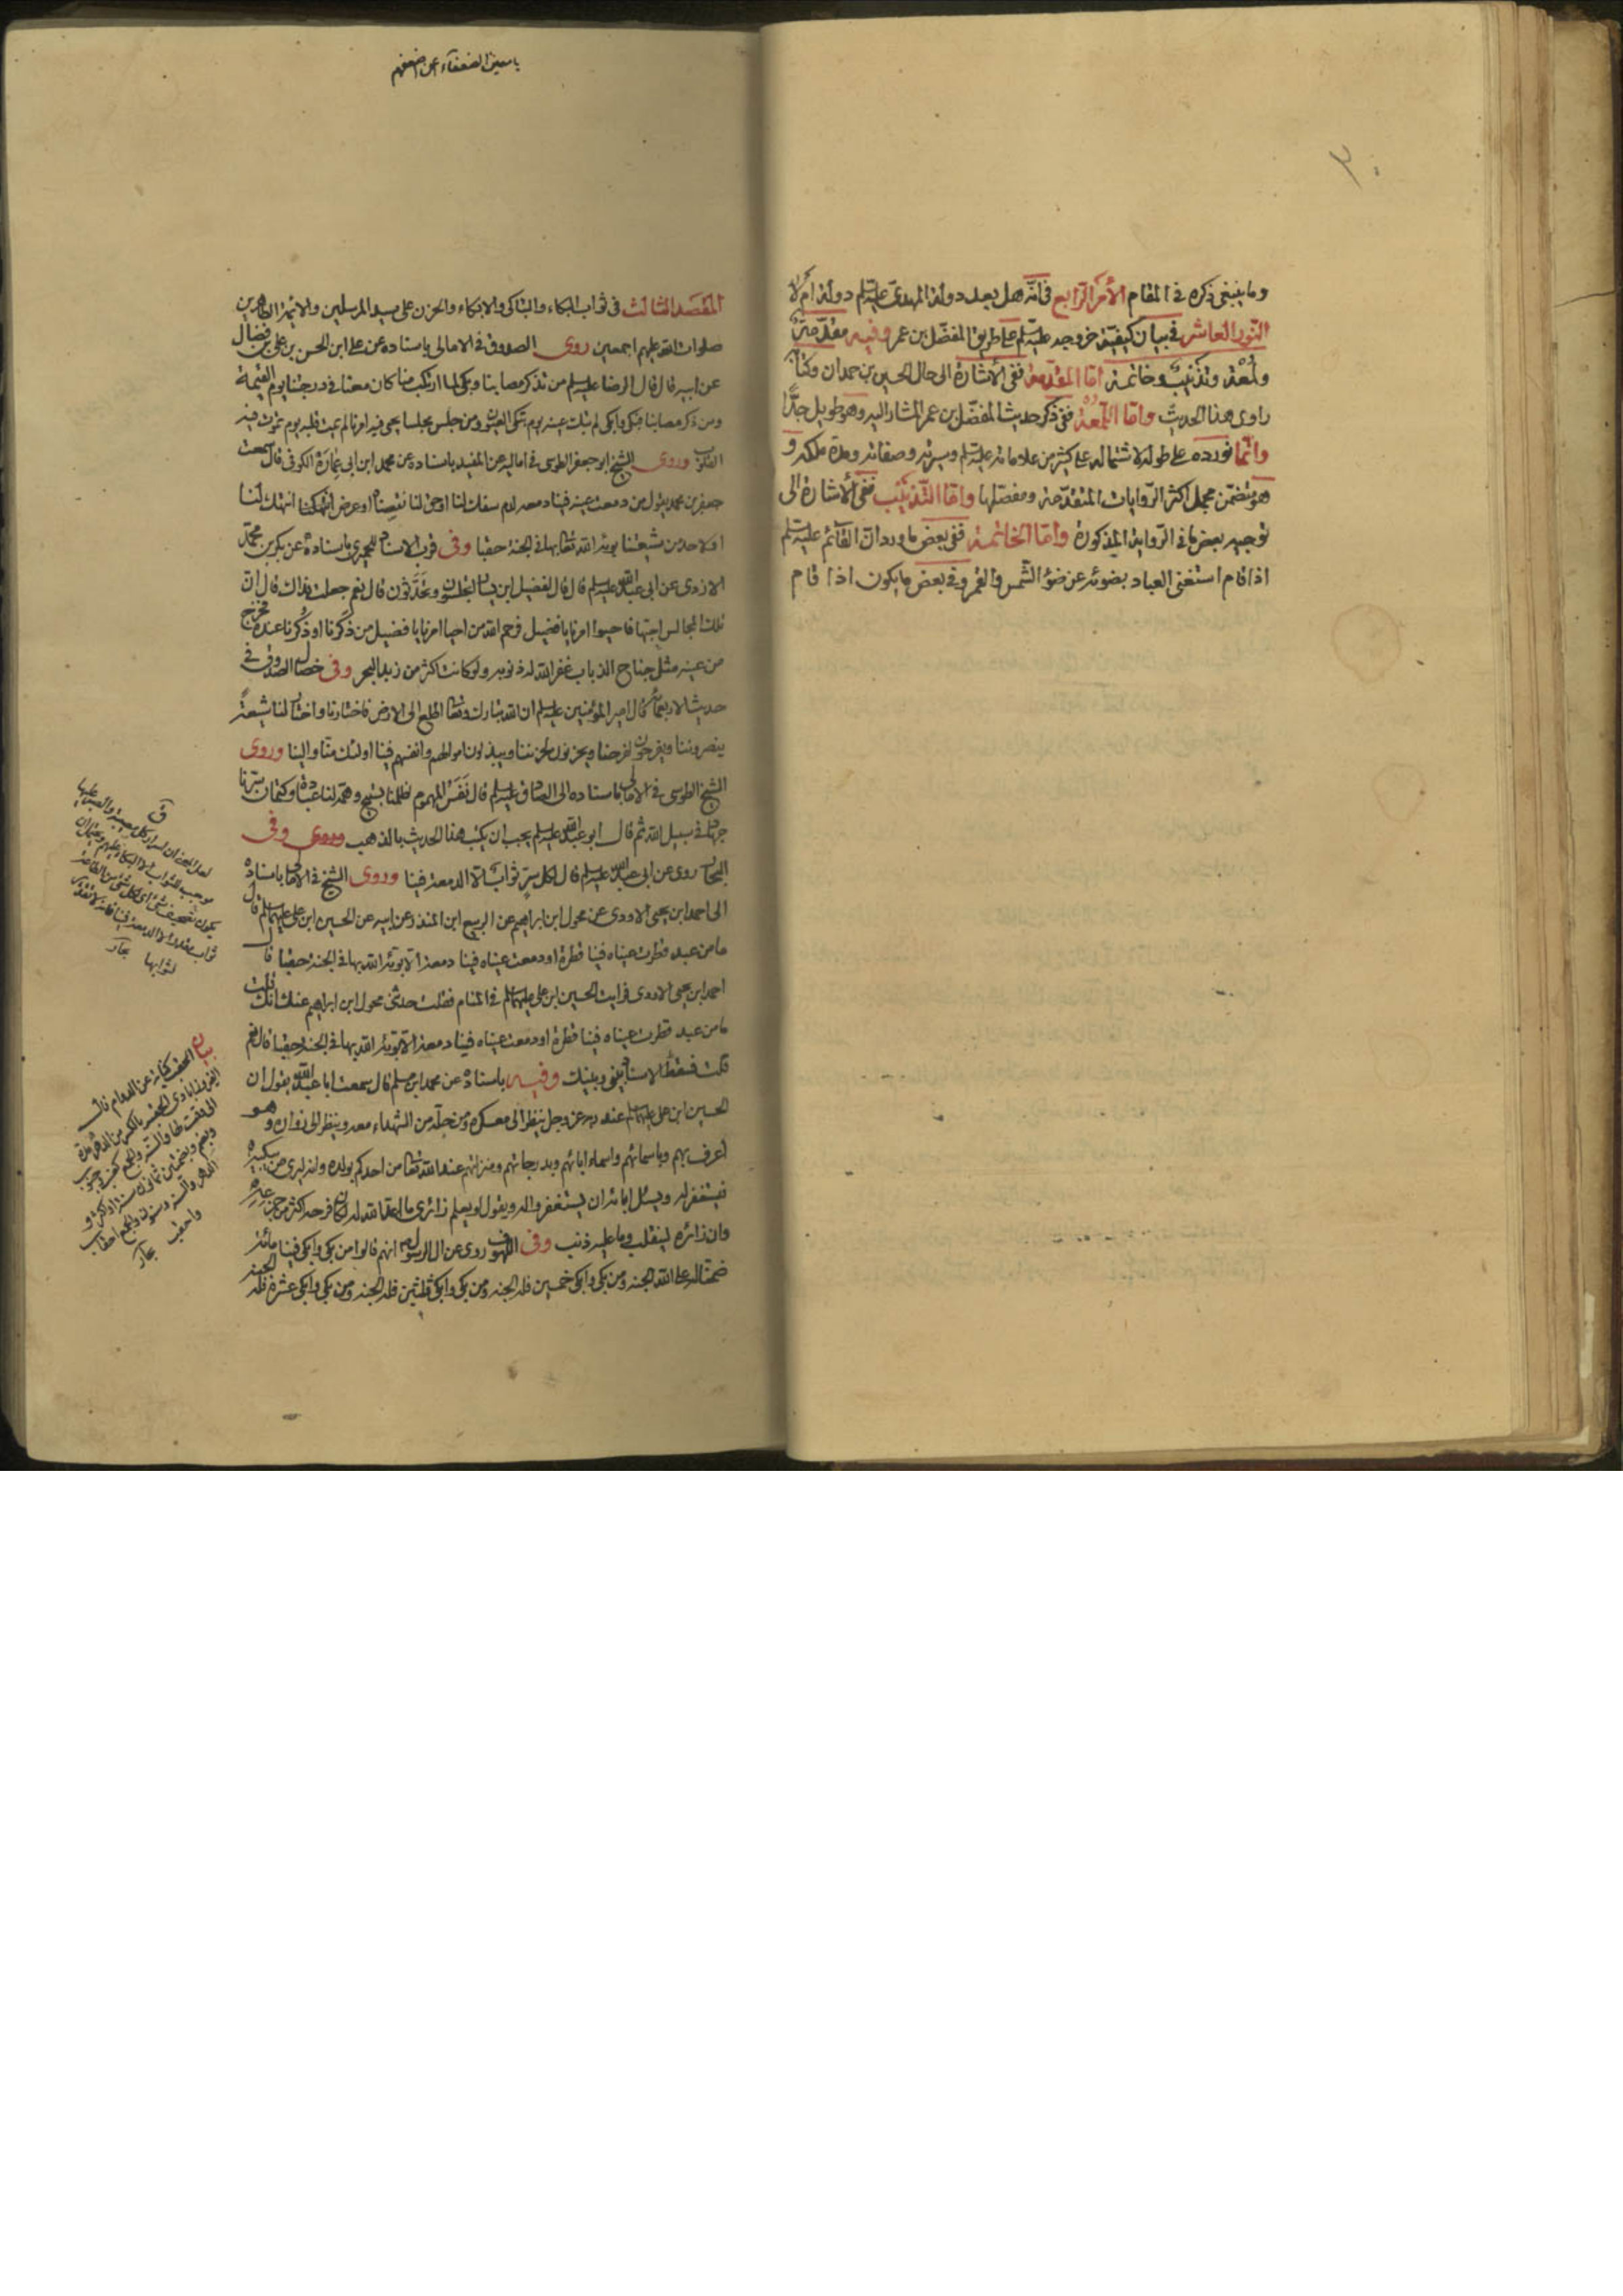 ٣٠
وما ينبغي ذكره في المقام الأمر الرابع في انّه هل بعد دولة المهدى عليه السلم دولة ام لا
النّور العاشر في بيان كيفيّة خروجه عليه السّلم على طريق المفضّل بن عمر وفيه مقدّمة
ولُمْعَة وتذنيب وخاتمة امّا المقدّمة ففي الأشارة الى حال الحسين بن حمدان وكتابه
راوى هذا الحديث وامّا اللّمعة ففي ذكر حديث المفضّل بن عمر المشار اليه وهو طويل جدًّا
وانّما نورده على طوله لاشتماله على كثير من علاماته عليه السّلم وسيرته وصفاته ومدة ملكه و
هو يتضمّن مجمل اكثر الرّوايات المتقدّمة ومفصّلها وامّا التّذنيب ففي الأشارة الى
توجيه بعض ما في الرّواية المذكورة وامّا الخاتمة ففي بعض ما ورد انّ القآئم عليه السّلم
اذا قام استغنى العباد بضوئه عن ضوُ الشّمس والقمر وفي بعض ما يكون اذا قام
يا معين الضعفآء
المَقْصَد الثالث في ثواب البكاء والتباكى والابكاء والحزن على سيد المرسلين والائمة الطاهرين
صلوات الله عليهم اجمعين روى الصدوق في الامالى باسناده عن على ابن الحسن بن على بن فضال
عن ابيه قال قال الرضا عليه السلم من تذكر مصابنا وبكى لما ارتكب منا كان معنا في درجتنا يوم القيمة
ومن ذكر مصابنا فبكى وابكى لم تبك عينه يوم تبكى العيون ومن جلس مجلسا يحيى فيه امرنا لم يمت قلبه يوم تموت فيه
القلوب وروى الشيخ ابو جعفر الطوسى في اماليه عن المفيد باسناده عن محمد ابن ابى عمارة الكوفي قال سمعت
جعفر بن محمد يقول من دمعت عينه فينا دمعة لدم سفك لنا او حق لنا نقصناه او عرض انتهك لنا
او لاحد من شيعتنا بوئه الله تعالى بها في الجنة حقبا وفي قرب الاسناد للحميرى باسناده عن بكر بن محمّد
الازدى عن ابى عبد الله عليه السلم قال قال لفضيل ابن يسار تجلسون وتحدّثون قال نعم جعلت فداك قال ان
تلك المجالس احبّها فاحيوا امرنا يا فضيل فرحم الله من احيا امرنا يا فضيل من ذكرنا او ذكرنا عنده فخرج
من عينه مثل جناح الذباب غفر الله له ذنوبه ولو كانت اكثر من زبد البحر وفي خصال الصدوق في
حديث الاربعمائة قال امير المؤمنين عليه السلم ان الله تبارك وتعالى اطلع الى الارض فاختارنا واختار لنا شيعةً
ينصروننا ويفرحون لفرحنا ويحزنون لحزننا ويبذلون اموالهم وانفسهم فينا اولئك منّا والينا وروى
الشيخ الطوسى في الامالى باسناده الى الصادق عليه السلم قال نَفَس المهموم لظلمنا تسبيح وهمّه لنا عبادة وكتمان سرّنا
جهاد في سبيل الله ثم قال ابو عبد الله عليه السلم يجب ان يكتب هذا الحديث بالذهب وروى وفي
البحار روى عن ابى عبد الله عليه السلم قال لكل سرّ ثواب الا الدمعة فينا وروى الشيخ في الامالى باسناده
الى احمد ابن يحيى الاودى عن مخول ابن ابراهيم عن الربيع ابن المنذر عن ابيه عن الحسين ابن على عليهما السلم قال
ما من عبد قطرت عيناه فينا قطرة او دمعت عيناه فينا دمعة الا بوّئه الله بها في الجنة حقبا قال
احمد ابن يحيى الاودى فرايت الحسين ابن على عليهما السلم في المنام فقلت حدثنى مخول ابن ابراهيم عنك انك قلت
ما من عبد قطرت عيناه فينا قطرة او دمعت عيناه فينا دمعة الا بوّئه الله بها في الجنة حقبا قال نعم
قلت فسقط الاسناد بينى وبينك وفيه باسناده عن محمد ابن مسلم قال سمعت ابا عبد الله يقول ان
الحسين ابن على عليهما السلم عند ربه عز وجل ينظر الى معسكره ومن حلّه من الشهداء معه وينظر الى زواره وهو
اعرف بهم وباسمائهم واسماء ابائهم وبدرجاتهم ومنزلتهم عند الله تعالى من احدكم بولده وانه ليرى من يبكيه
فيستغفر له ويسئل ابائه ان يستغفروا له ويقول لو يعلم زائرى ما اعد الله له لكان فرحه اكثر من جزعه
وان زائره لينقلب وما عليه ذنب وفي اللهوف روى عن ال الرسول انهم قالوا من بكى وابكى فينا مائة
ضمنّا له على الله الجنة ومن بكى وابكى خمسين فله الجنة ومن بكى وابكى ثلثين فله الجنة ومن بكى وابكى عشرة فله الجنة
لعل المعنى ان اسرار كل مصيبة والصبر عليها
موجب للثواب الا البكاء عليهم ويحتمل ان
يكون تصحيف شئ اى لكل شئ من الطاعة
ثواب مقدر الا الدمعة فينا فانه لا تقدير
لثوابها بحار
بيان الحقب كناية عن الدوام قال
الفيروزابادى الحقبه بالكسر من الدهر مدة
لا وقت لها والسنة والجمع كعنب وحبوب
وبالضم وبضمتين ثمانون سنة او اكثر و
الدهر والسنة والسنون والجمع احقاب
واحقب بحار